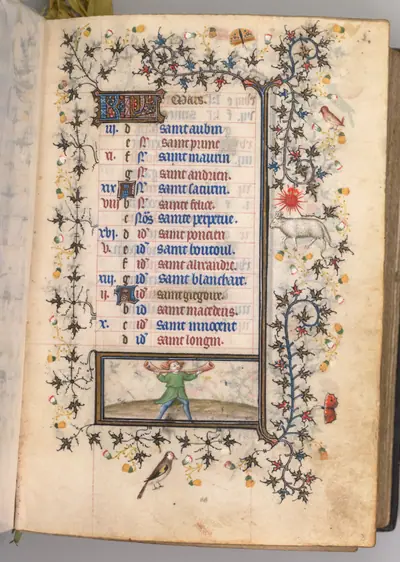 Mars.
iii. d saint aubin
f saint prime
vi. f saint maurin
g saint andrien
xix A saint saturin
viii b sainte felice
c nōs sainte perpetue.
xvi. d id saint poncien
v. e id saint boutoul.
f id saint alixandre.
xiii. g id saint blanchart.
ii. A id saint gregoire
b id saint macedens
x. c id saint innocent
d id saint longin